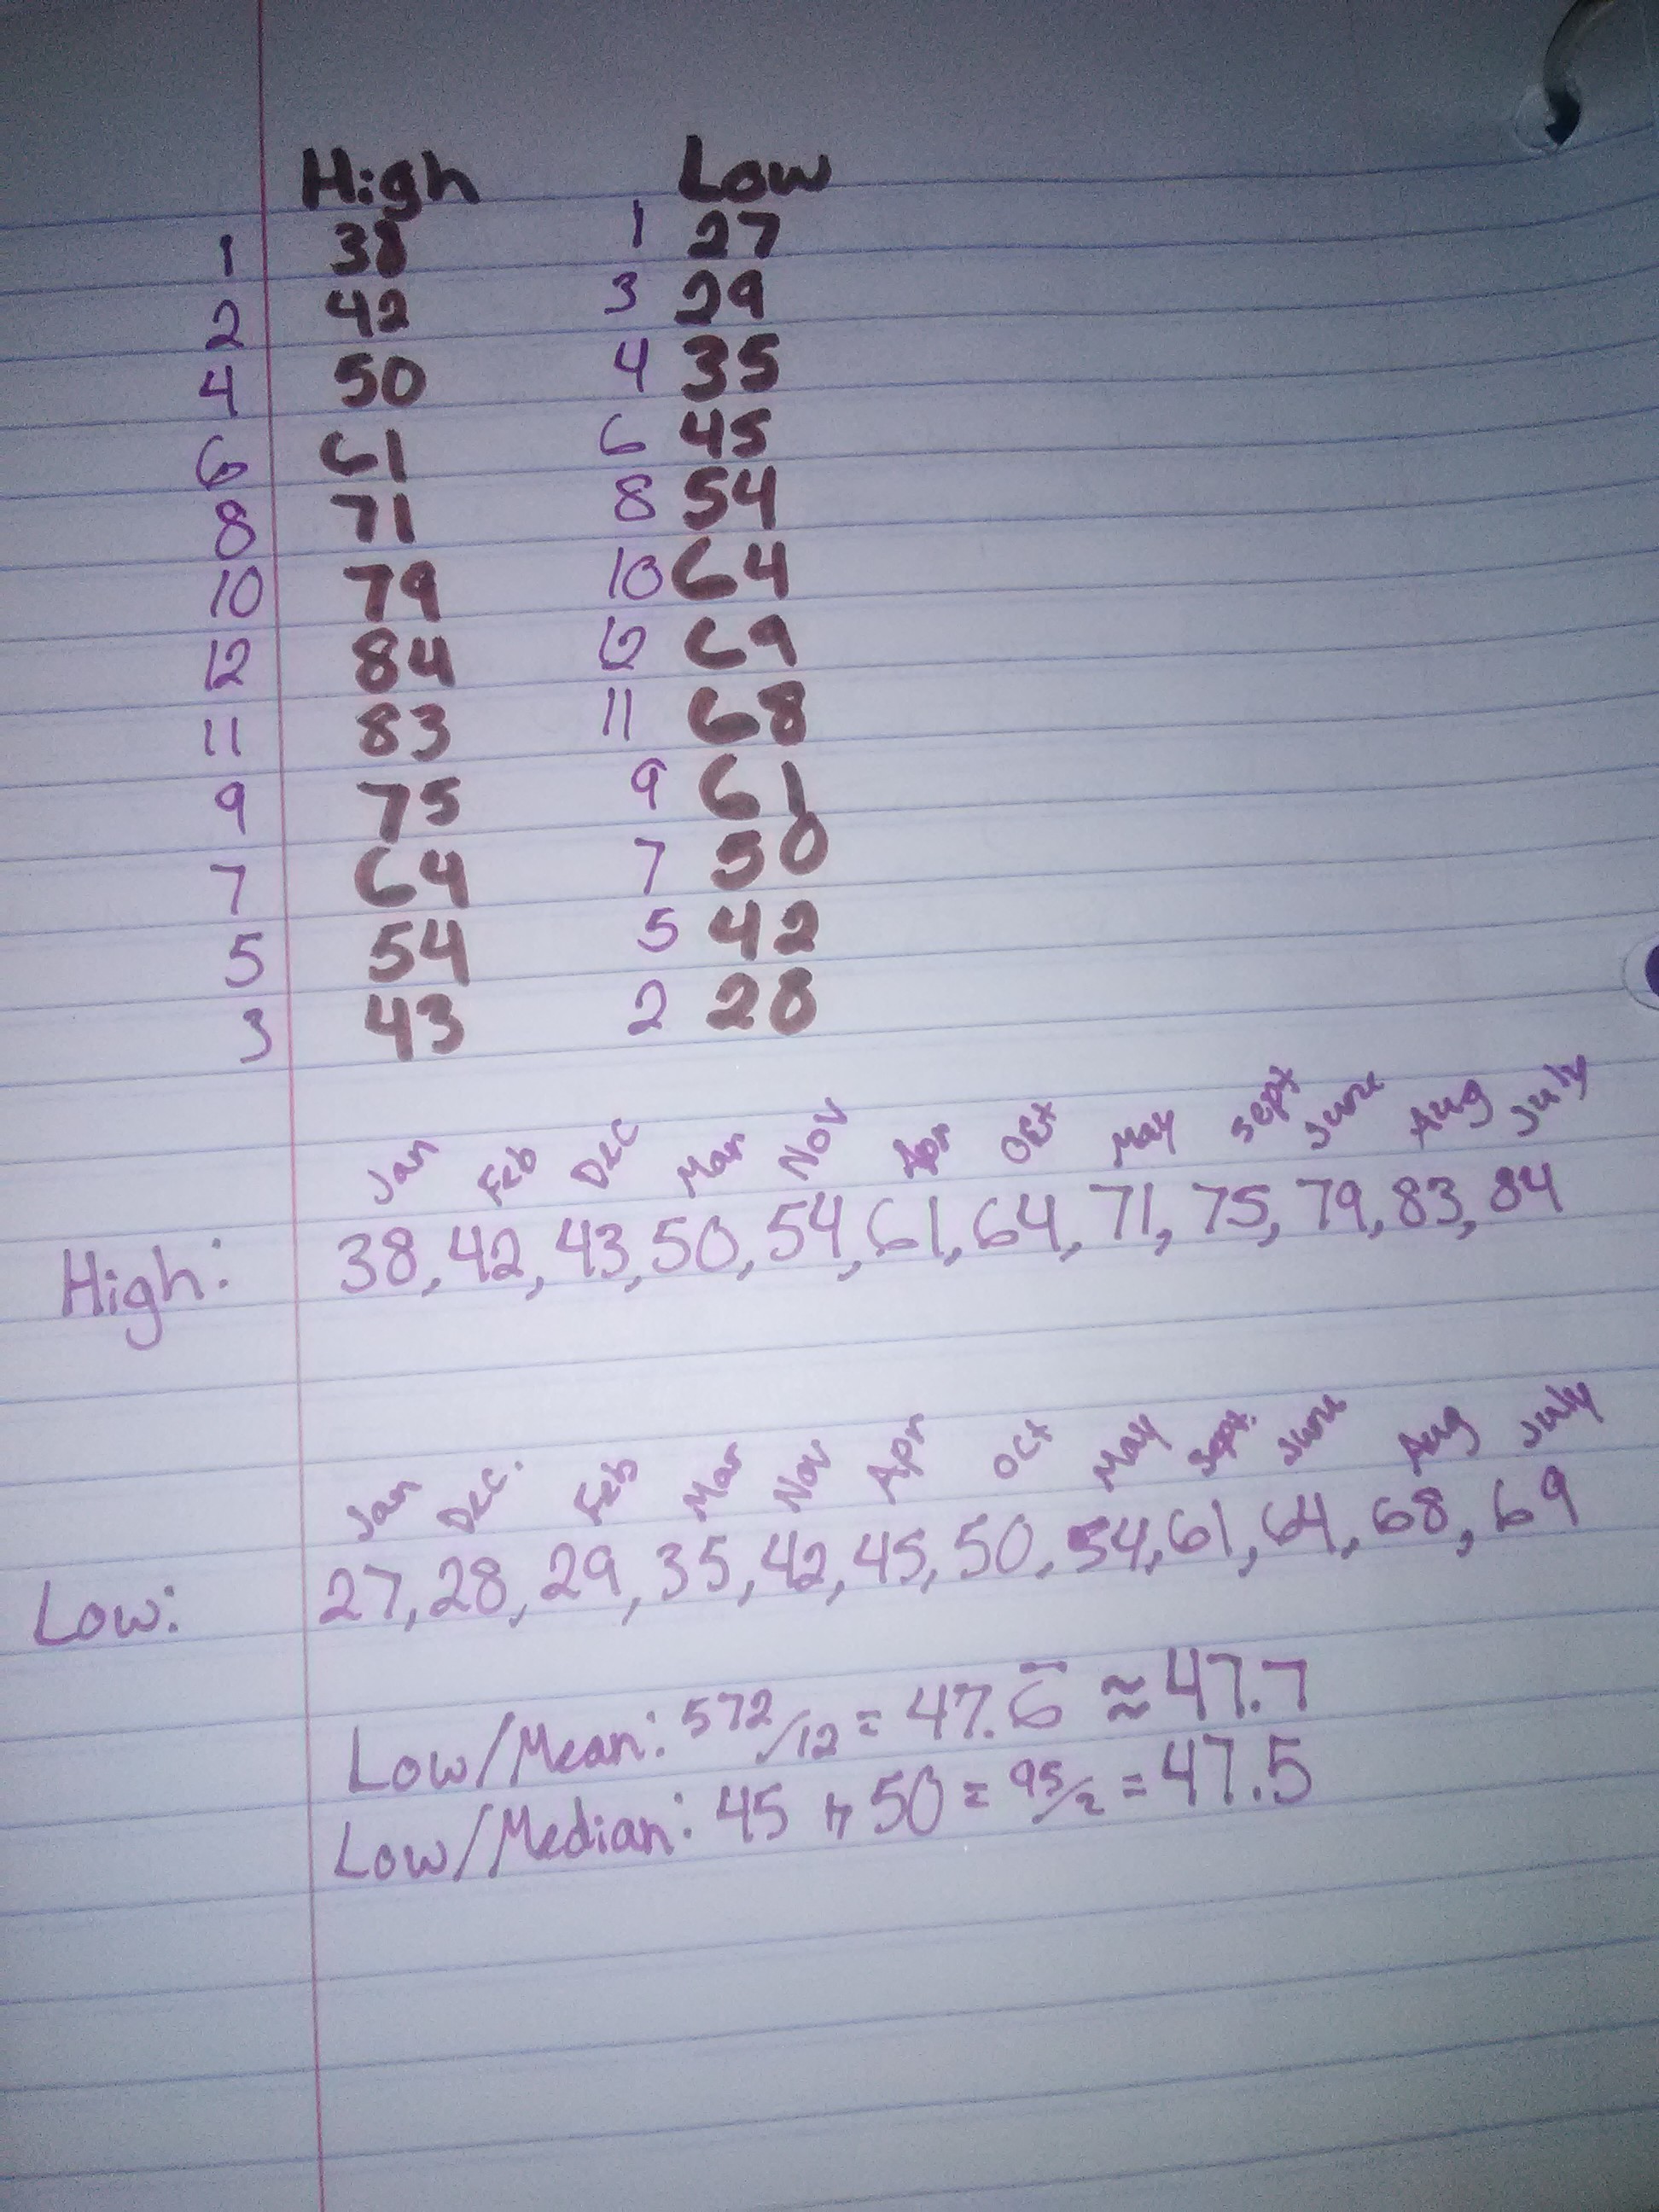 High Low
1 38 1 27
2 42 3 29
4 50 4 35
6 61 6 45
8 71 8 54
10 79 10 64
12 84 12 69
11 83 11 68
9 75 9 61
7 64 7 50
5 54 5 42
3 43 2 28
Jan Feb Dec Mar Nov Apr Oct May Sept June Aug July
High: 38, 42, 43, 50, 54, 61, 64, 71, 75, 79, 83, 84
Jan Dec. Feb Mar Nov Apr Oct May Sept. June Aug July
Low: 27, 28, 29, 35, 42, 45, 50, 54, 61, 64, 68, 69
Low/Mean: 572/12 = 47.6̅ ≈ 47.7
Low/Median: 45 + 50 = 95/2 = 47.5